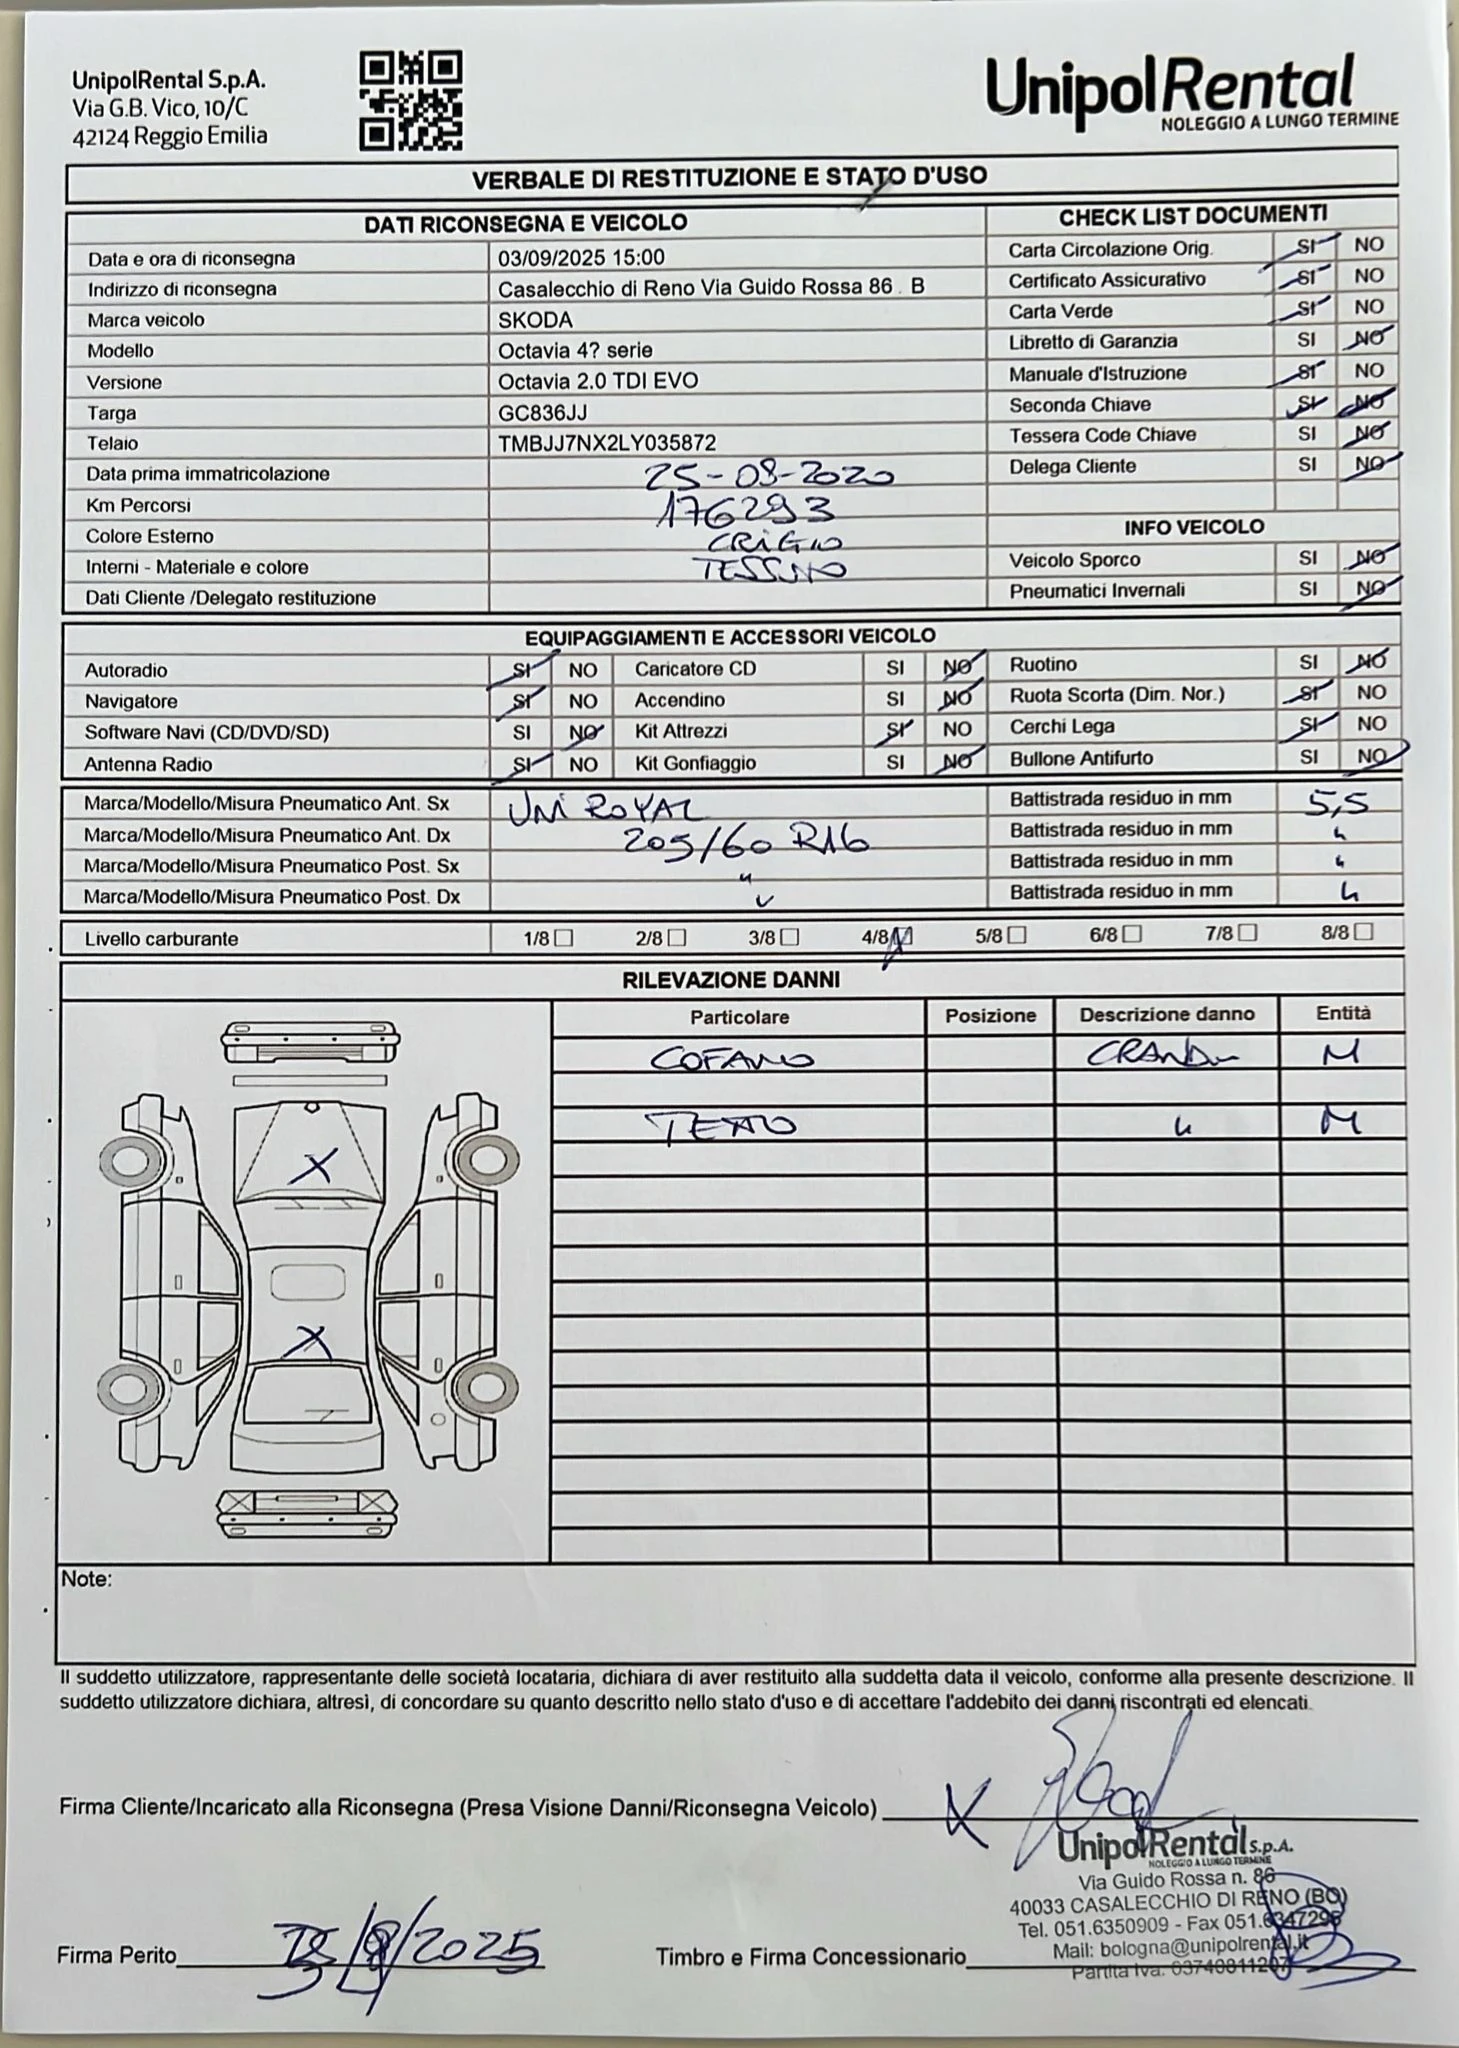 UnipolRental S.p.A.
Via G.B. Vico, 10/C
42124 Reggio Emilia
UnipolRental
NOLEGGIO A LUNGO TERMINE
VERBALE DI RESTITUZIONE E STATO D'USO
DATI RICONSEGNA E VEICOLO
Data e ora di riconsegna 03/09/2025 15:00
Indirizzo di riconsegna Casalecchio di Reno Via Guido Rossa 86 . B
Marca veicolo SKODA
Modello Octavia 4? serie
Versione Octavia 2.0 TDI EVO
Targa GC836JJ
Telaio TMBJJ7NX2LY035872
Data prima immatricolazione 25-08-2020
Km Percorsi 176293
Colore Esterno GRIGIO
Interni - Materiale e colore TESSUTO
Dati Cliente /Delegato restituzione
CHECK LIST DOCUMENTI
Carta Circolazione Orig. SI NO
Certificato Assicurativo SI NO
Carta Verde SI NO
Libretto di Garanzia SI NO
Manuale d'Istruzione SI NO
Seconda Chiave SI NO
Tessera Code Chiave SI NO
Delega Cliente SI NO
INFO VEICOLO
Veicolo Sporco SI NO
Pneumatici Invernali SI NO
EQUIPAGGIAMENTI E ACCESSORI VEICOLO
Autoradio SI NO Caricatore CD SI NO Ruotino SI NO
Navigatore SI NO Accendino SI NO Ruota Scorta (Dim. Nor.) SI NO
Software Navi (CD/DVD/SD) SI NO Kit Attrezzi SI NO Cerchi Lega SI NO
Antenna Radio SI NO Kit Gonfiaggio SI NO Bullone Antifurto SI NO
Marca/Modello/Misura Pneumatico Ant. Sx UNIROYAL Battistrada residuo in mm 5,5
Marca/Modello/Misura Pneumatico Ant. Dx 205/60 R16 Battistrada residuo in mm "
Marca/Modello/Misura Pneumatico Post. Sx " Battistrada residuo in mm "
Marca/Modello/Misura Pneumatico Post. Dx " Battistrada residuo in mm "
Livello carburante 1/8 2/8 3/8 4/8 5/8 6/8 7/8 8/8
RILEVAZIONE DANNI
Particolare Posizione Descrizione danno Entità
COFANO M
"  M
Note:
Il suddetto utilizzatore, rappresentante delle società locataria, dichiara di aver restituito alla suddetta data il veicolo, conforme alla presente descrizione. Il
suddetto utilizzatore dichiara, altresì, di concordare su quanto descritto nello stato d'uso e di accettare l'addebito dei danni riscontrati ed elencati.
Firma Cliente/Incaricato alla Riconsegna (Presa Visione Danni/Riconsegna Veicolo) X
UnipolRental S.p.A.
NOLEGGIO A LUNGO TERMINE
Via Guido Rossa n. 86
40033 CASALECCHIO DI RENO (BO)
Tel. 051.6350909 - Fax 051.6347295
Mail: bologna@unipolrental.it
Partita Iva: 03740811207
Firma Perito /2025
Timbro e Firma Concessionario